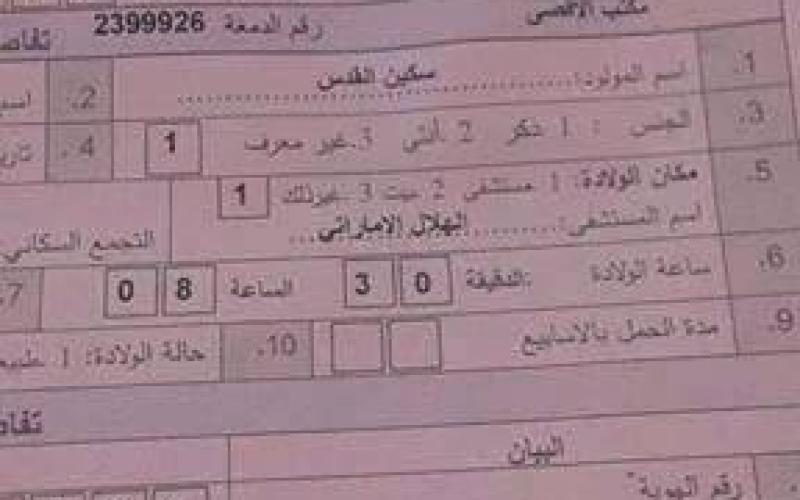 مكتب الأقصى
رقم الدمعة 2399926
تفاص
1. اسم المولود: سكين القدس
2. اسم
3. الجنس : 1 ذكر 2 .أنثى 3.غير معرف 1
4. تاري
5. مكان الولادة: 1 مستشفى 2 بيت 3 غيرذلك 1
اسم المستشفى: الهلال الاماراتي
التجمع السكاني
6. ساعة الولادة الدقيقة: 3 0 الساعة 0 8
7.
9. مدة الحمل بالاسابيع
10. حالة الولادة: 1 طبيع
تفاص
البيان
رقم الهوية